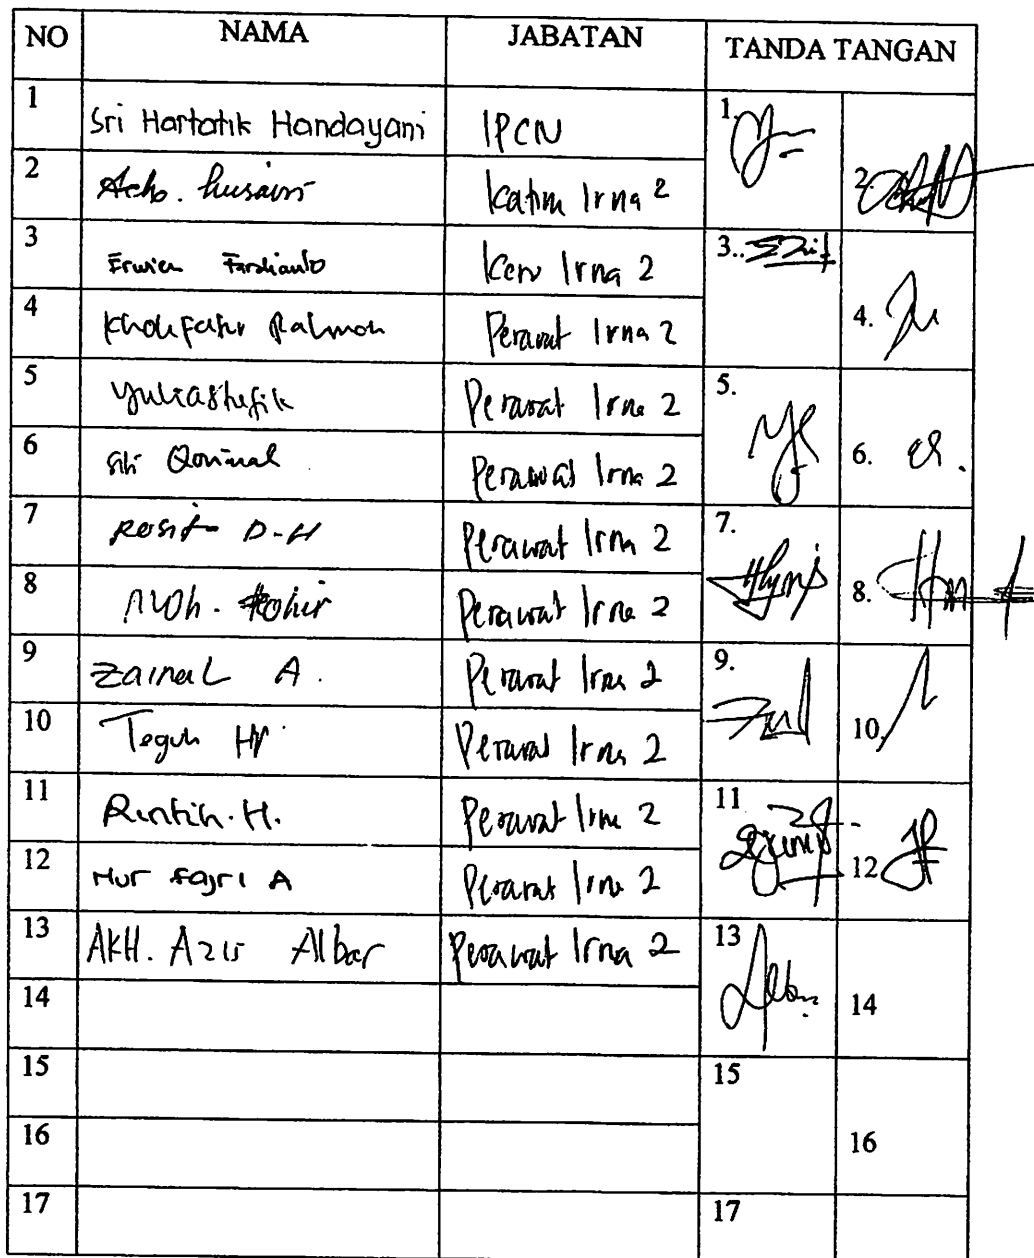 NO NAMA JABATAN TANDA TANGAN
1 Sri Hartatik Handayani IPCN 1.
2 Ach. Husaini Katim Irna 2 2.
3 Erwien Ferdianto Karu Irna 2 3..
4 Kholifatur Rahman Perawat Irna 2 4.
5 Yuliashefik Perawat Irna 2 5.
6 Siti Qomimah Perawat Irna 2 6.
7 Rosita D-H Perawat Irna 2 7.
8 Moh. Perawat Irna 2 8.
9 Zainal A. Perawat Irna 2 9.
10 Teguh Perawat Irna 2 10,
11 Rintih. H. Perawat Irna 2 11
12 Nur Fajri A Perawat Irna 2 12
13 AKH. Azis Albar Perawat Irna 2 13
14 14
15 15
16 16
17 17